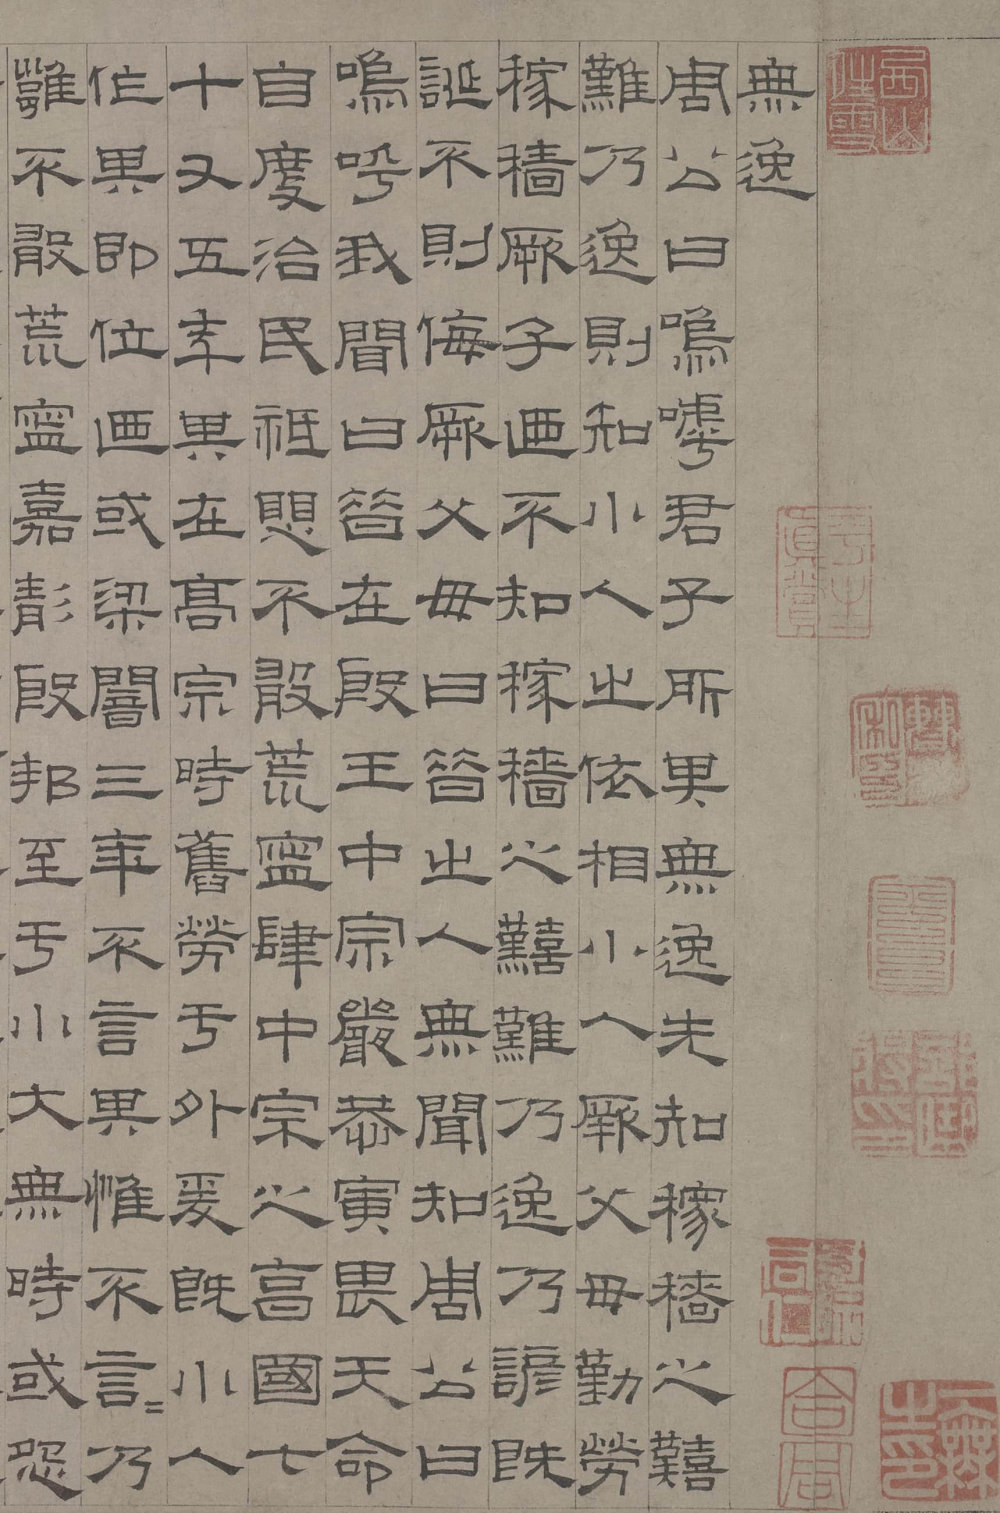 無逸
周公曰嗚嘑君子所其無逸先知稼穡之囏
難乃逸則知小人㞢依相小人厥父毋勤勞
稼穡厥子迺不知稼穡之囏難乃逸乃諺既
誕不則侮厥父毋曰昝㞢人無聞知周公曰
嗚呼我聞曰昝在殷王中宗嚴恭寅畏天命
自度治民祗愳不敢荒寧肆中宗之亯國七
十又五年其在高宗時舊勞于外爰既小人
作其即位迺或梁闇三年不言其惟不言=乃
雝不敢荒寧嘉彰殷邦至于小大無時或怨